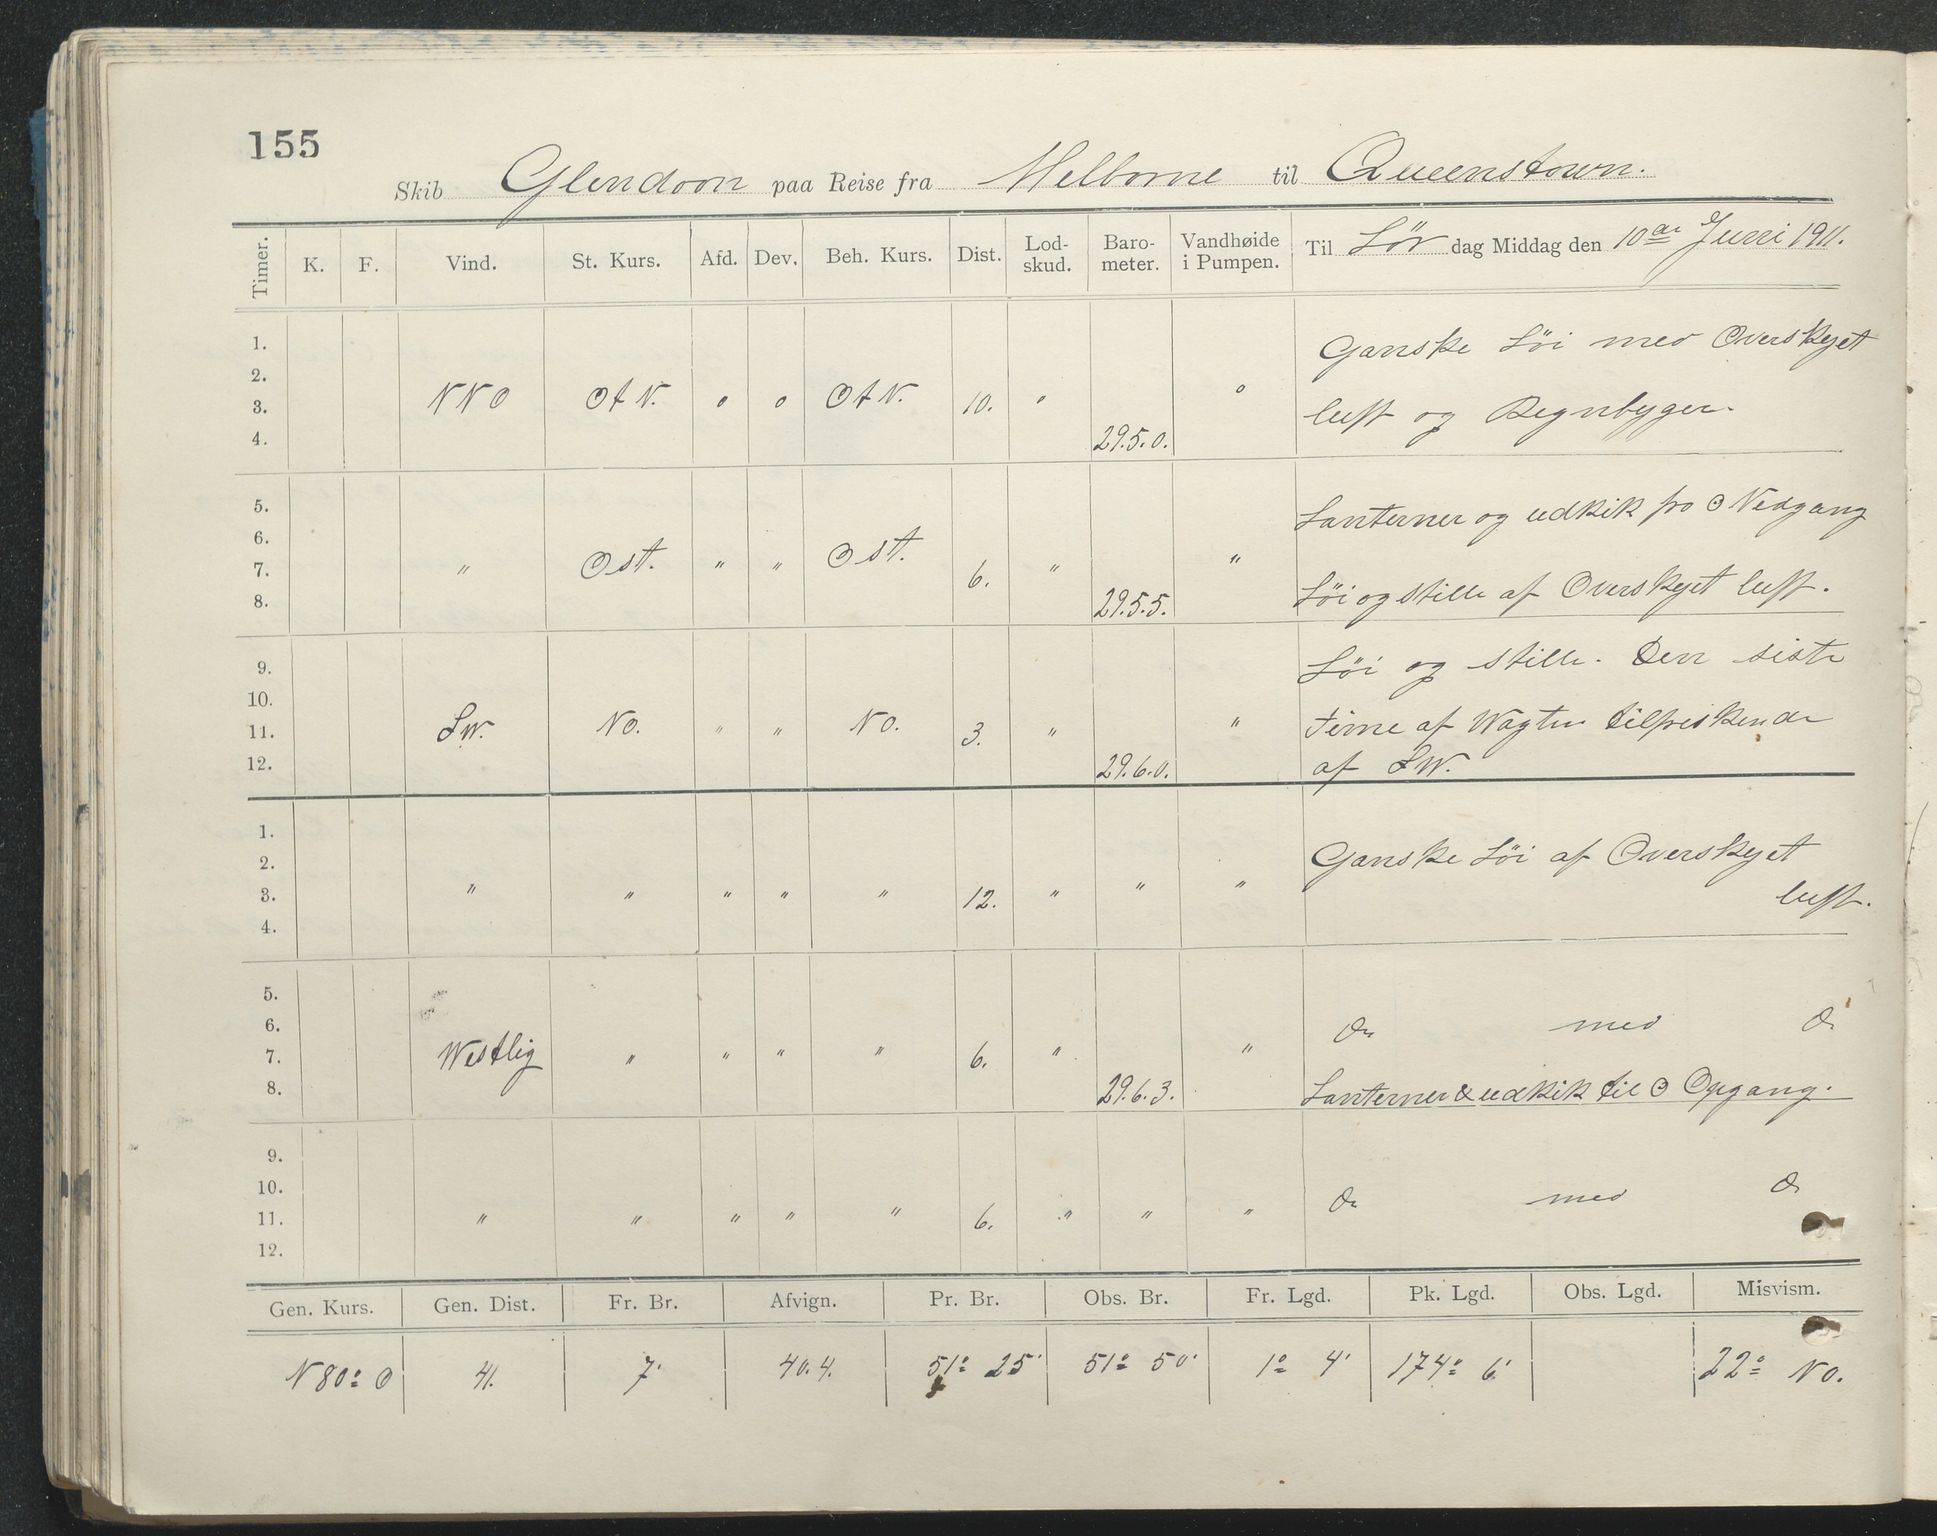 155
Skib Glendoon paa Reise fra Melborne til Queenstown.
Timer. K. F. Vind. St. Kurs. Afd. Dev. Beh. Kurs. Dist. Lod-skud. Baro-meter. Vandhøide i Pumpen. Til Lör dag Middag den 10de Juni 1911.
1. Ganske Löi med Overskyet
2.
3. NNO OtN. o o OtN. 10. o o luft og Regnbyger.
4. 29.5.0.
5. Lanterner og udkik fro ☉ Nedgang
6.
7. " Ost. " " Ost. 6. " "
8. 29.5.5. Löi og stille af Overskyet luft.
9. Löi og stille. Den siste
10.
11. SW. NO. " " NO. 3. " " Time af Wagten tilfriskende
12. 29.6.0. af SW.
1.
2. Ganske Löi af Overskyet
3. " " " " " 12. " " " luft.
4.
5.
6. Do med Do
7. Westlig " " " " 6. " "
8. 29.6.3. Lanterner & udkik til ☉ Opgang.
9.
10. Do med Do
11. " " " " " 6. " " "
12.
Gen. Kurs. Gen. Dist. Fr. Br. Afvign. Pr. Br. Obs. Br. Fr. Lgd. Pk. Lgd. Obs. Lgd. Misvism.
N 80° O 41. 7' 40.4. 51° 25' 51° 50' 1° 4' 174° 6' 22° NO.